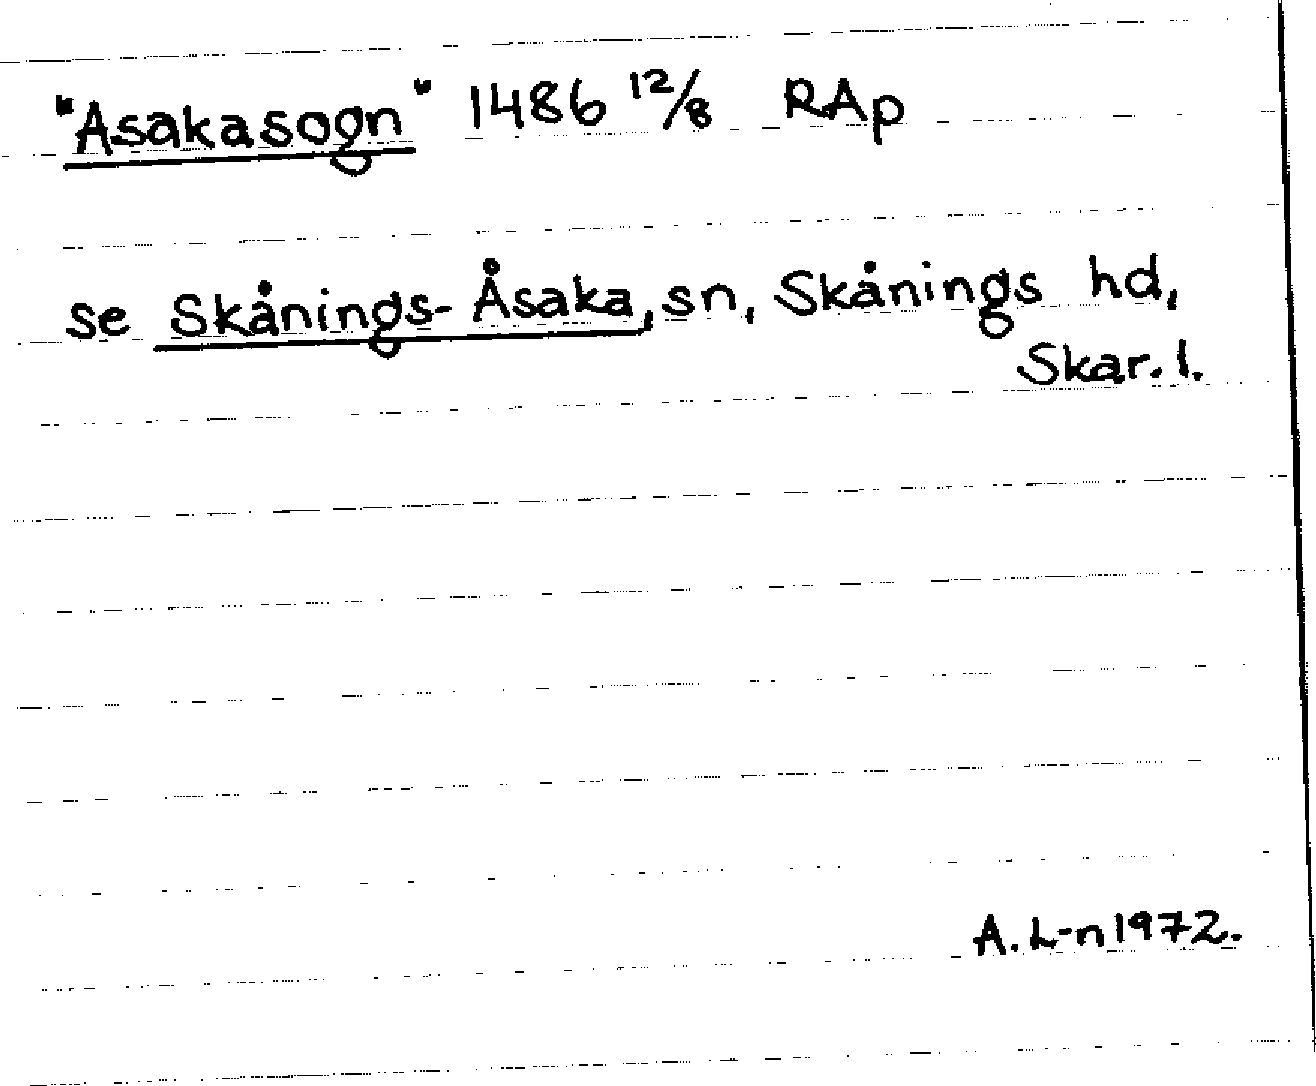 "Asakasogn" 1486 12/8 RAp
se Skånings-Åsaka, sn, Skånings hd,
Skar. l.
A. L-n 1972.